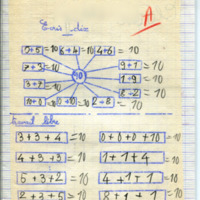 A
5+5 =10 8+4 =10 4+6 = 10
7+3 =10 9+1 = 10
10
1+9 =10
8+2 =10
10+0 =10 0+10 =10 2+8 = 10
3+3+4 =10 0+0+0+10 =10
4+3+3 =10 1+1+4 =10
5+3+2 =10 4+1+1 =10
2+3+5 =10 8+1+1 =10